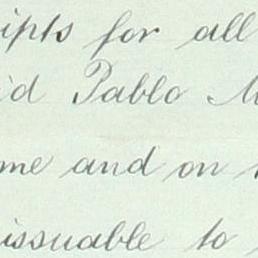 ipts for all
id Pablo M
me and on
issuable to